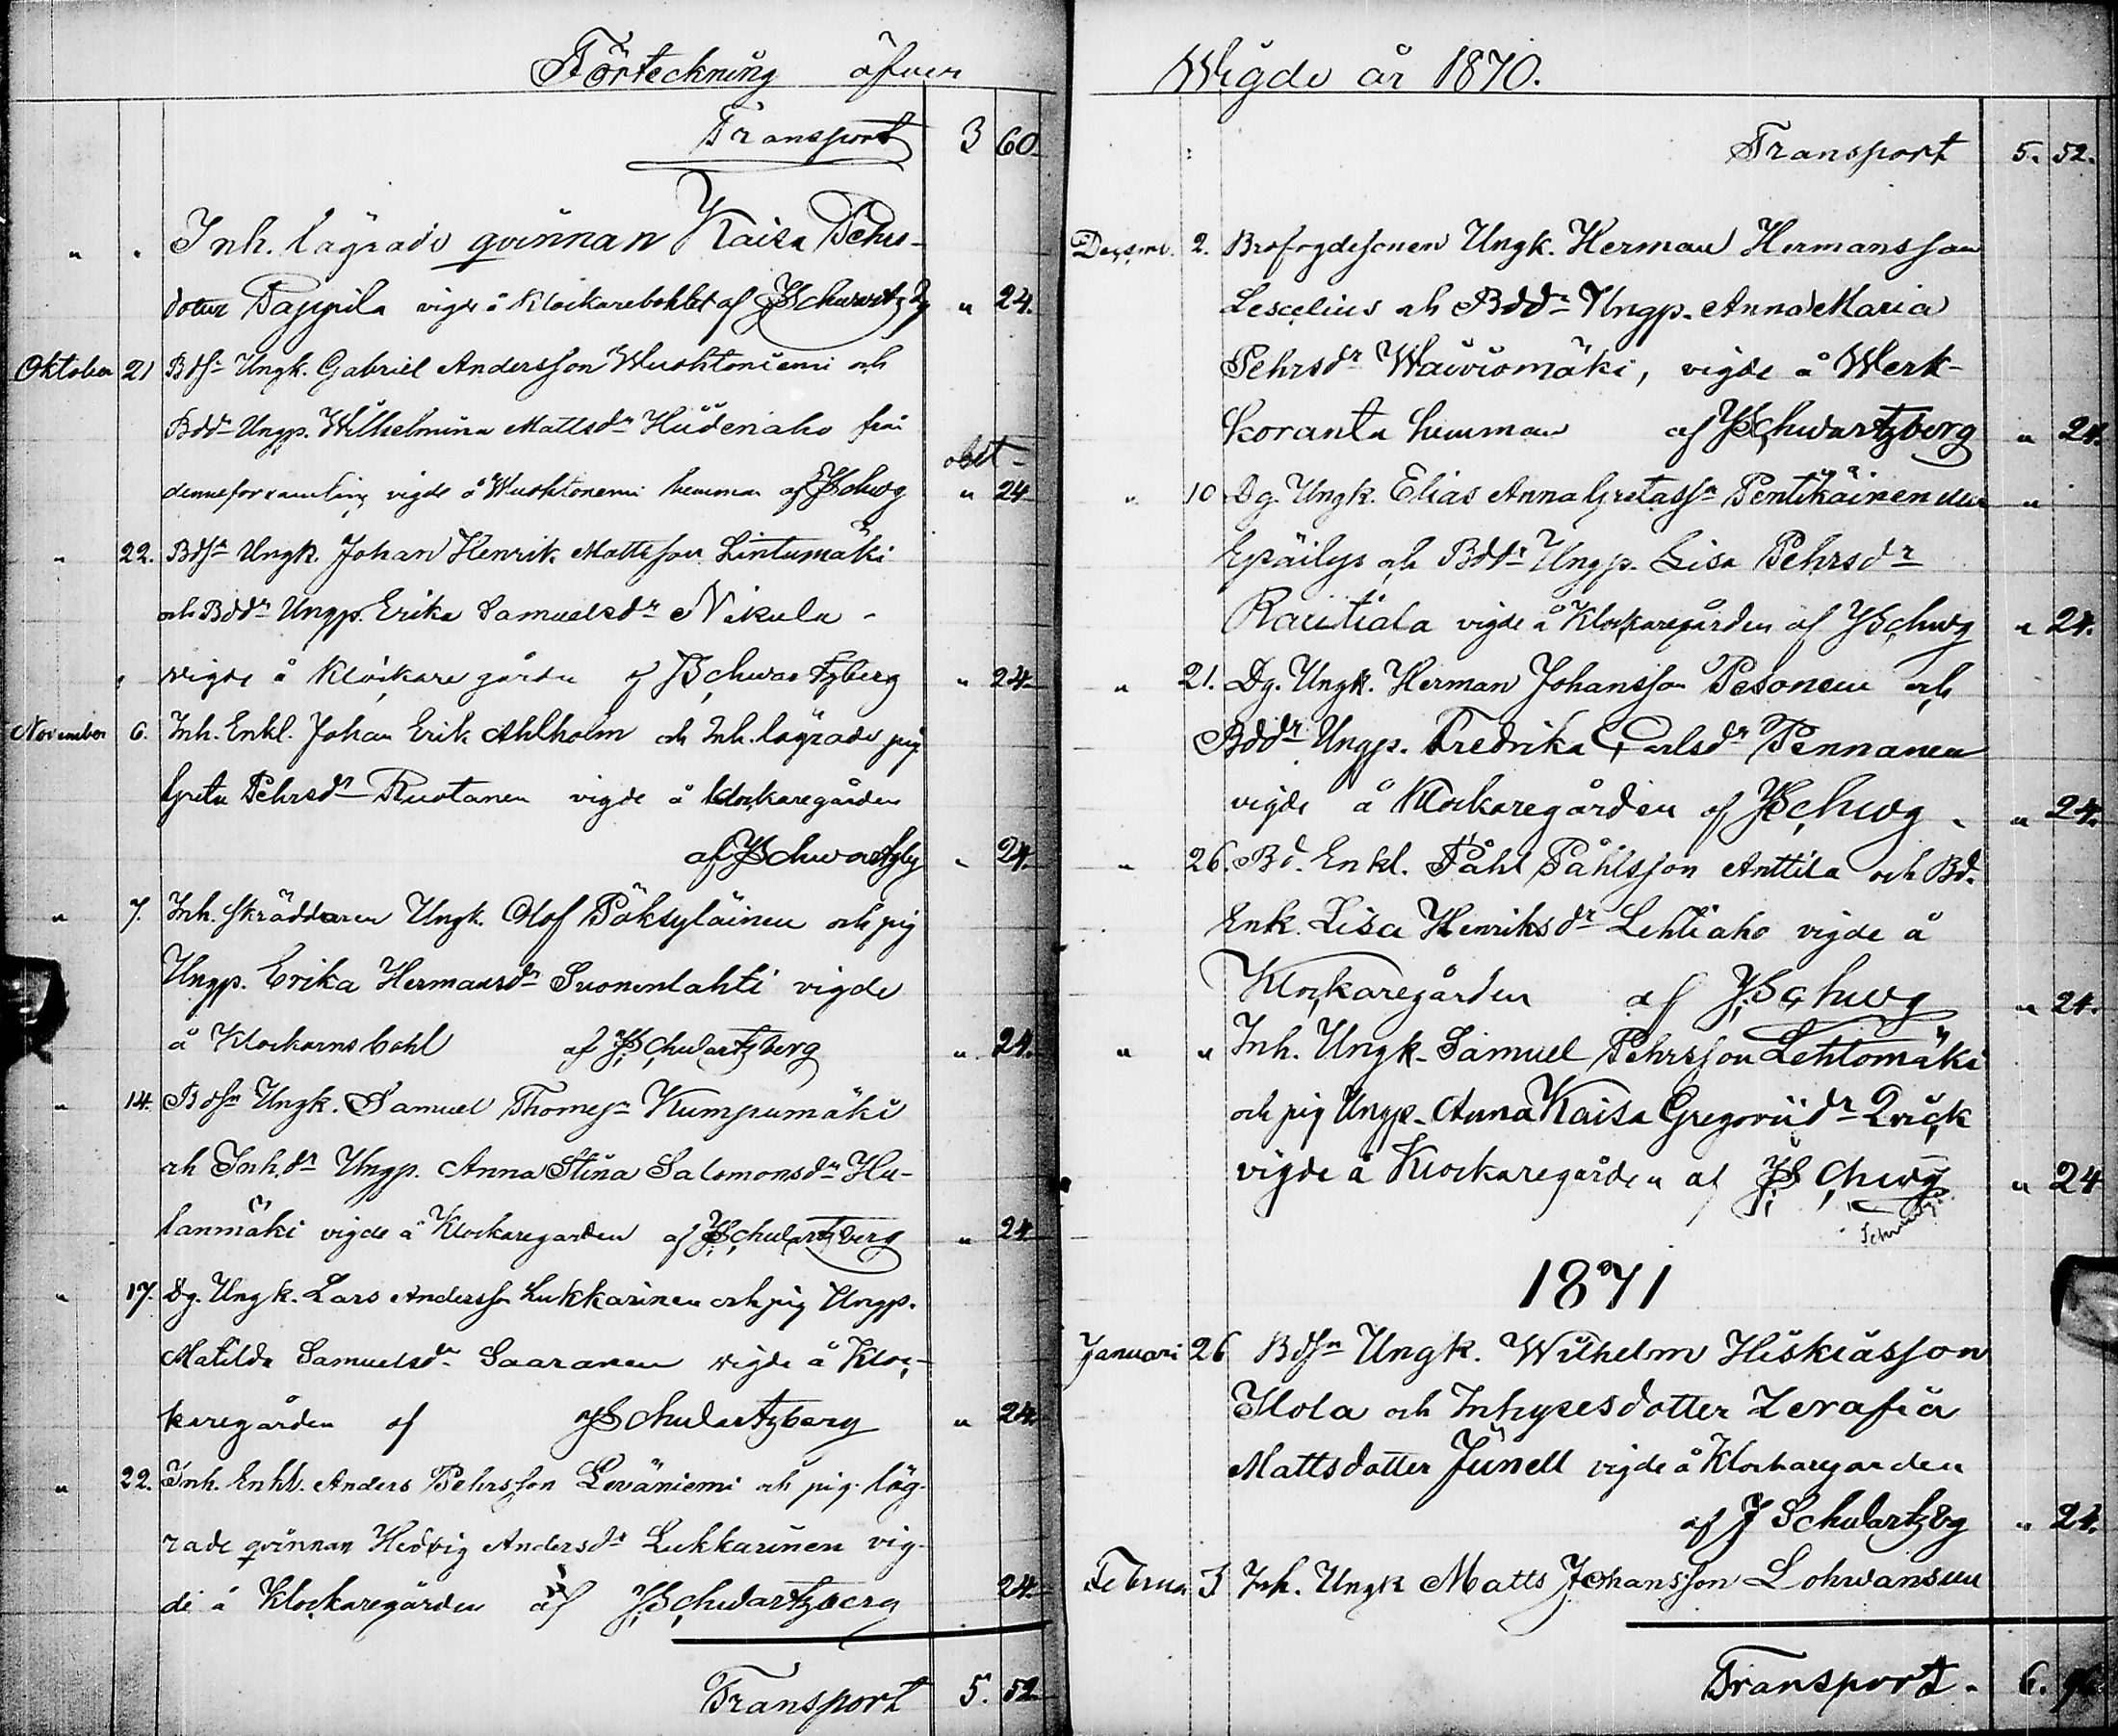 Förteckning öfver
Transport 3 60
" " Inh. lägrade qvinnan Kaisa Pehrs-
dotter Pappila vigde å Klockarebohlet af JSchwartzbg " 24.
Oktober 21 Bdsn Ungk. Gabriel Andersson Wuohtoniemi och
Bddr Ungp. Wilhelmina Mattsdr Hiidenaho från
obet-
denna församling vigde å Wuohtoniemi hemman af JSchwg " 24
" 22. Bdsn Ungk. Johan Henrik Mattsson Lintumäki
och Bddr Ungp. Erika Samuelsdr Nikula -
vigde å Klockaregården af JSchwartzberg " 24
November 6. Inh. Enkl. Johan Erik Ahlholm och Inh. lägrade pig.
Greta Pehrsdr Ruotanen vigde å klockaregården
af JSchwartzbg " 24.
" 7. Inh. skräddaren Ungk. Olof Pöksyläinen och pig
Ungp. Erika Hermansdr Suonenlahti vigde
å Klockarns bohl af JSchwartzberg " 24.
" 14. Bdsn Ungk. Samuel Thomesn Kumpumäki
och Inh.dr Ungp. Anna Stina Salomonsdr Hu-
lanmäki vigde å Klockaregarden af JSchwartzberg " 24
" 17. Dg. Ungk. Lars Andersson Lukkarinen och pig Ungp.
Matilda Samuelsdr Saaranen vigde å Kloc-
karegården af JSchwartzberg " 24.
" 22. Inh. Enkl. Anders Pehrsson Leväniemi och pig. läg-
rade qvinnan Hedvig Andersdr Lukkarinen vig-
de å Klockaregården af JSchwartzberg 24.
Transport 5. 52
Wigde år 1870.
Transport 5. 52.
Decemb. 2. Brofogdesonen Ungk. Herman Hermansson
Lescelius och Bddr Ungp. Anna Maria
Pehrsdr Waiviomäki, vigde å Werk-
koranta hemman af JSchwartzberg " 24.
" 10 Dg. Ungk. Elias Anna Gretassn Pentikäinen "
Epäilys och Bddr Ungp. Lisa Pehrsdr
Rautiala vigde å Klockaregården af JSchwg " 24.
" 21. Dg. Ungk. Herman Johansson Pesonen och
Bddr Ungp. Fredrika Carlsdr Pennanen
vigde å Klockaregården af JSchwg " 24.
" 26. Bd. Enkl. Påhl Påhlsson Anttila och Bd.
Enk. Lisa Henriksdr Lehtiaho vigde å
Klockaregården af JSchwg " 24.
" " Inh. Ungk. Samuel Pehrsson Lehtomäki
och pig Ungp. Anna Kaisa Gregoriidr Qvick
vigde å Klockaregården af JSchwg " 24
1871
Januari 26 Bdsn Ungk. Wilhelm Hiskiasson
Ilola och Inhysesdotter Zerafia
Mattsdotter Junell vigde å Klockaregarden
af J Schwartzbg " 24.
Februa. 3 Inh. Ungk Matts Johansson Lohwansuu
Transport. 6. 96